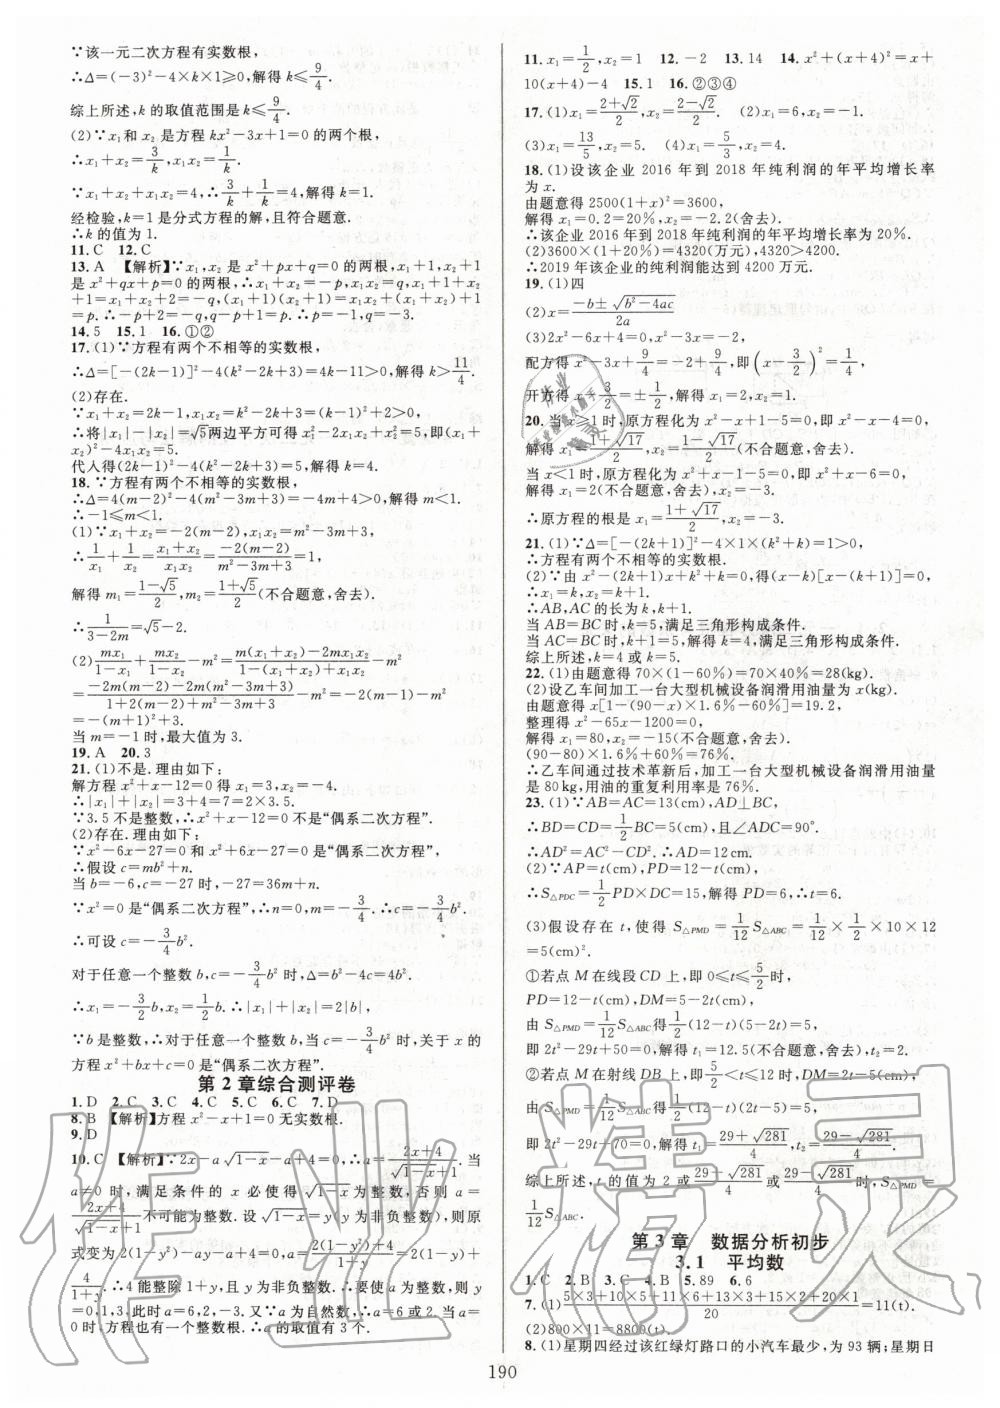 ∵该一元二次方程有实数根,
∴Δ=(−3)²−4×k×1≥0,解得 k≤9/4.
综上所述,k的取值范围是k≤9/4.
(2)∵x₁和x₂是方程kx²−3x+1=0的两个根,
∴x₁+x₂=3/k,x₁x₂=1/k.
∵x₁+x₂+x₁x₂=4,∴3/k+1/k=4,解得k=1.
经检验,k=1是分式方程的解,且符合题意.
∴k的值为1.
11.C 12.C
13.A 【解析】∵x₁,x₂是x²+px+q=0的两根,x₁+1,x₂+1
是x²+qx+p=0的两根,∴x₁+x₂=−p,x₁x₂=q,x₁+1+x₂
+1=x₁+x₂+2=−q,(x₁+1)(x₂+1)=x₁x₂+(x₁+x₂)+1
=p.∴−p+2=−q,q−p+1=p.∴p=−1,q=−3.
14.5 15.1 16.①②
17.(1)∵方程有两个不相等的实数根,
∴Δ=[−(2k−1)]²−4(k²−2k+3)=4k−11>0,解得k>11/4.
(2)存在.
∵x₁+x₂=2k−1,x₁x₂=k²−2k+3=(k−1)²+2>0,
∴将|x₁|−|x₂|=√5两边平方可得x₁²−2x₁x₂+x₂²=5,即(x₁+
x₂)²−4x₁x₂=5.
代入得(2k−1)²−4(k²−2k+3)=5,解得k=4.
18.∵方程有两个不相等的实数根,
∴Δ=4(m−2)²−4(m²−3m+3)=−4m+4>0,解得m<1.
∴−1≤m<1.
(1)∵x₁+x₂=−2(m−2),x₁x₂=m²−3m+3,
∴1/x₁+1/x₂=(x₁+x₂)/(x₁x₂)=−2(m−2)/(m²−3m+3)=1,
解得m₁=(1−√5)/2,m₂=(1+√5)/2(不合题意,舍去).
∴1/(3−2m)=√5−2.
(2)mx₁/(1−x₁)+mx₂/(1−x₂)−m²=(m(x₁+x₂)−2mx₁x₂)/(1−(x₁+x₂)+x₁x₂)−m²
=(−2m(m−2)−2m(m²−3m+3))/(1+2(m−2)+(m²−3m+3))−m²=−2(m−1)−m²
=−(m+1)²+3.
当m=−1时,最大值为3.
19.A 20.3
21.(1)不是.理由如下:
解方程x²+x−12=0得x₁=3,x₂=−4.
∴|x₁|+|x₂|=3+4=7=2×3.5.
∵3.5不是整数,∴x²+x−12=0不是“偶系二次方程”.
(2)存在.理由如下:
∵x²−6x−27=0和x²+6x−27=0是“偶系二次方程”,
∴假设c=mb²+n.
当b=−6,c=−27时,−27=36m+n.
∵x²=0是“偶系二次方程”,∴n=0,m=−3/4.∴c=−3/4b².
∴可设c=−3/4b².
对于任意一个整数b,c=−3/4b²时,Δ=b²−4c=4b².
∴x₁=−3/2b,x₂=1/2b.∴|x₁|+|x₂|=2|b|,
∵b是整数,∴对于任意一个整数b,当c=−3/4b²时,关于x的
方程x²+bx+c=0是“偶系二次方程”.
第2章综合测评卷
1.D 2.C 3.C 4.C 5.C 6.C 7.D
8.B 【解析】方程x²−x+1=0无实数根.
9.D
10.C 【解析】∵2x−a√(1−x)−a+4=0,∴a=(2x+4)/(√(1−x)+1).当
a≠0时,满足条件的x必使得√(1−x)为整数,否则a=
(2x+4)/(√(1−x)+1)不可能为整数.设√(1−x)=y(y为非负整数),则原
式变为2(1−y²)−ay−a+4=0,∴a=(2(1−y²)+4)/(1+y)=2(1−y)+
4/(1+y).∴4能整除1+y,且y为非负整数.∴要使a为整数,则y
=0,1,3,此时a=6,2,−3.又∵a为自然数,∴a=6或2.当a=
0时,方程也有一个整数根.∴a的取值有3个.
11.x₁=1/2,x₂=1 12.−2 13.14 14.x²+(x+4)²=x+
10(x+4)−4 15.1 16.②③④
17.(1)x₁=(2+√2)/2,x₂=(2−√2)/2. (2)x₁=6,x₂=−1.
(3)x₁=13/5,x₂=5. (4)x₁=5/3,x₂=4.
18.(1)设该企业2016年到2018年纯利润的年平均增长率
为x.
由题意得2500(1+x)²=3600,
解得x₁=0.2=20%,x₂=−2.2(舍去).
∴该企业2016年到2018年纯利润的年平均增长率为20%.
(2)3600×(1+20%)=4320(万元),4320>4200.
∴2019年该企业的纯利润能达到4200万元.
19.(1)四
(2)x=(−b±√(b²−4ac))/2a
(3)2x²−6x=−4,x²−3x=−2,
配方得x²−3x+9/4=−2+9/4,即(x−3/2)²=1/4,
开方得x−3/2=±1/2,x₁=2,x₂=1.
20.当x≥1时,原方程化为x²−x+1−5=0,即x²−x−4=0,
解得x₁=(1+√17)/2,x₂=(1−√17)/2(不合题意,舍去).
当x<1时,原方程化为x²+x−1−5=0,即x²+x−6=0,
解得x₁=2(不合题意,舍去),x₂=−3.
∴原方程的根是x₁=(1+√17)/2,x₂=−3.
21.(1)∵Δ=[−(2k+1)]²−4×1×(k²+k)=1>0,
∴方程有两个不相等的实数根.
(2)∵由x²−(2k+1)x+k²+k=0,得(x−k)[x−(k+1)]=0,
∴x₁=k,x₂=k+1.
∴AB,AC的长为k,k+1.
当AB=BC时,k=5,满足三角形构成条件.
当AC=BC时,k+1=5,解得k=4,满足三角形构成条件.
综上所述,k=4或k=5.
22.(1)由题意得70×(1−60%)=70×40%=28(kg).
(2)设乙车间加工一台大型机械设备润滑用油量为x(kg).
由题意得x[1−(90−x)×1.6%−60%]=19.2,
整理得x²−65x−1200=0,
解得x₁=80,x₂=−15(不合题意,舍去).
(90−80)×1.6%+60%=76%,
∴乙车间通过技术革新后,加工一台大型机械设备润滑用油量
是80kg,用油的重复利用率是76%.
23.(1)∵AB=AC=13(cm),AD⊥BC,
∴BD=CD=1/2BC=5(cm),且∠ADC=90°.
∴AD²=AC²−CD².∴AD=12cm.
(2)∵AP=t,PD=12−t,
∴S△PDC=1/2PD×DC=15,解得PD=6,∴t=6.
(3)假设存在t,使得S△PMD=1/12S△ABC=1/12×1/2×10×12
=5(cm)².
①若点M在线段CD上,即0≤t≤5/2时,
PD=12−t(cm),DM=5−2t(cm),
由S△PMD=1/12S△ABC得1/2(12−t)(5−2t)=5,
即2t²−29t+50=0,解得t₁=12.5(舍去),t₂=2.
②若点M在射线DB上,即5/2<t<12时,
由S△PMD=1/12S△ABC得1/2(12−t)(2t−5)=5,
即2t²−29t+70=0,解得t₁=(29+√281)/4,t₂=(29−√281)/4.
综上所述,t的值为2或(29+√281)/4或(29−√281)/4时,S△PMD=
1/12S△ABC.
第3章 数据分析初步
3.1 平均数
1.C 2.B 3.C 4.B 5.89 6.6
7.(1)(5×3+10×5+11×6+13×3+15×2+20×1)/20=11(t).
(2)800×11=8800(t).
8.(1)星期四经过该红绿灯路口的小汽车最少,为93辆;星期日
190
作业精灵